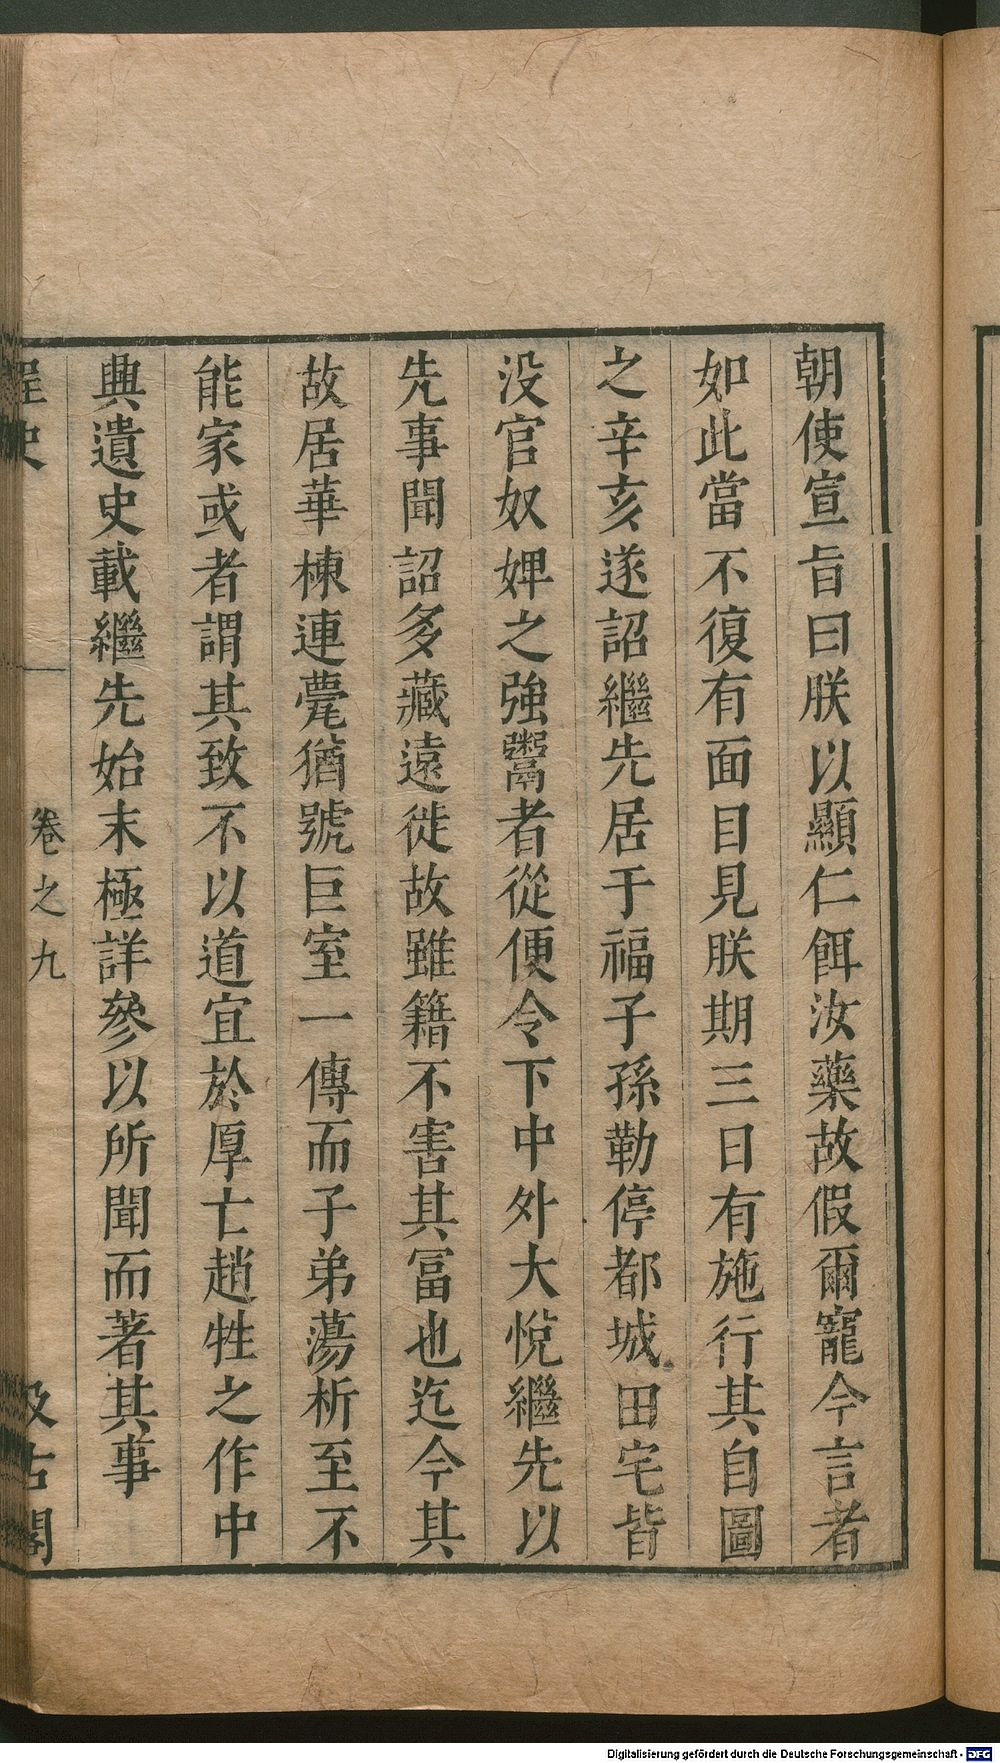 朝使宣旨曰朕以顯仁餌汝藥故假爾寵今言者
如此當不復有面目見朕期三日有施行其自圖
之辛亥遂詔繼先居于福子孫勒停都城田宅皆
没官奴婢之強鬻者從便令下中外大悅繼先以
先事聞詔多藏遠徙故雖籍不害其冨也迄今其
故居華棟連甍猶號巨室一傳而子弟蕩析至不
能家或者謂其致不以道宜於厚亡趙甡之作中
興遺史載繼先始末極詳參以所聞而著其事
桯史
卷之九
汲古閣
Digitalisierung gefördert durch die Deutsche Forschungsgemeinschaft - DFG